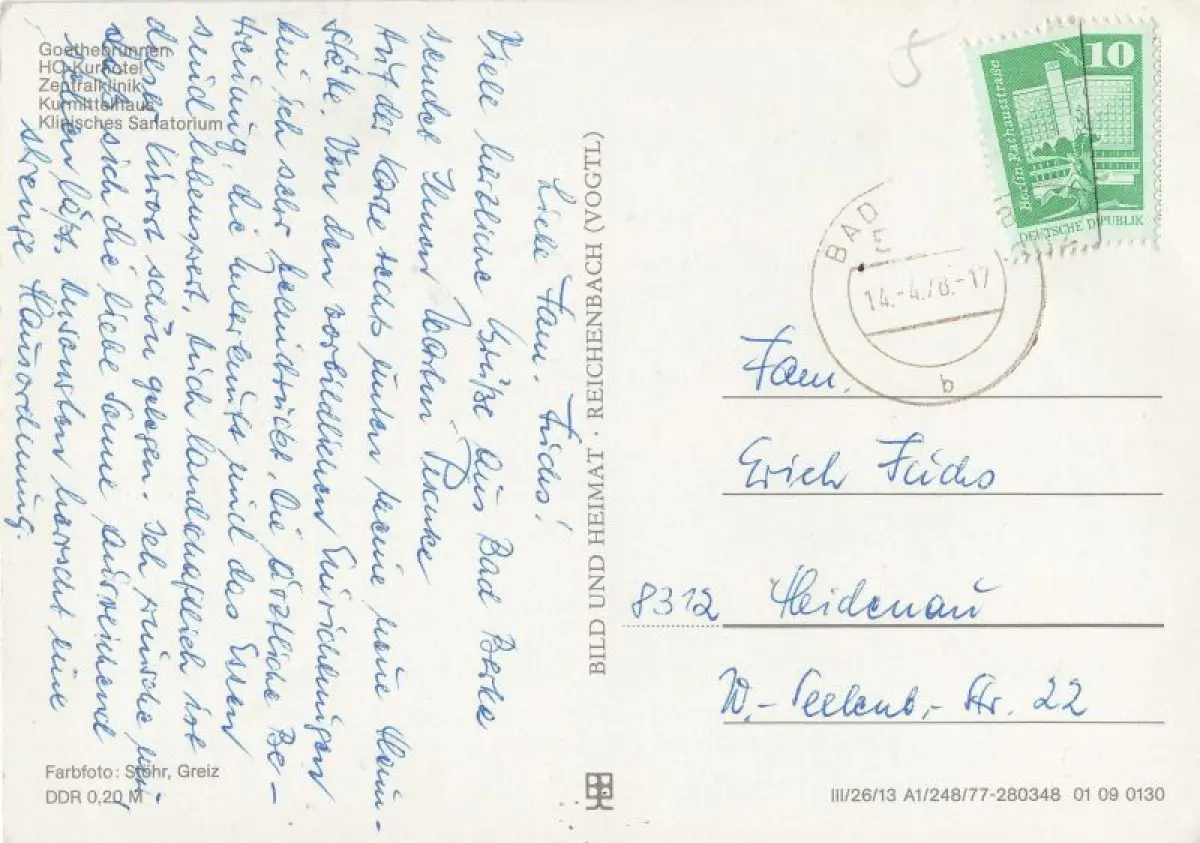 Goethebrunnen
HO-Kurhotel
Zentralklinik
Kurmittelhaus
Klinisches Sanatorium
Liebe Fam. Fuchs!
Viele herzliche Grüße aus Bad Berka
sendet Ihnen
Auf der Karte rechts unten meine neue Heim-
stäte. Von den vorbildlichen Einrichtungen
bin ich sehr beeindruckt. Die ärztliche Be-
treuung, die Unterkunft und das Essen
sind lobenswert. Auch landschaftlich ist
dieser Kurort schön gelegen. Ich wünsche mir
daß sich die liebe Sonne ausreichend
sehen läßt. Ansonsten herrscht eine
strenge Hausordnung.
Farbfoto: Stöhr, Greiz
DDR 0,20 M
BILD UND HEIMAT · REICHENBACH (VOGTL)
10
Berlin Rathausstraße
DEUTSCHE
BAD
5
14.-4.78.-17
b
Fam.
Erich Fuchs
8312 Heidenau
W.-Seelenb.-Str. 22
III/26/13 A1/248/77-280348 01 09 0130